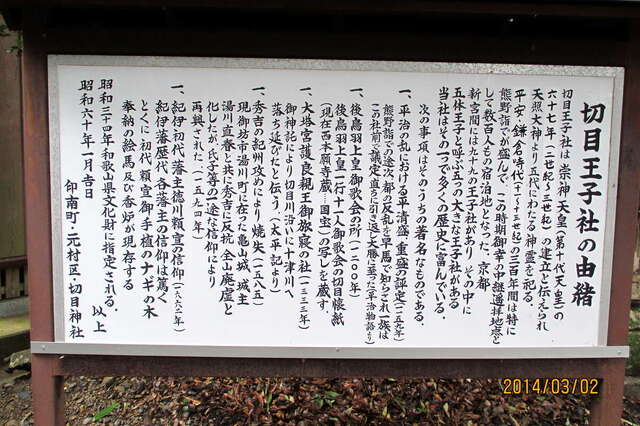 切目王子社の由緒
切目王子社は崇神天皇(第十代天皇)の
六十七年(二世紀〜三世紀)の建立と伝えられ
天照大神より五代にわたる神霊を祀る。
平安・鎌倉時代(十一〜十三世紀)の三百年間は特に
熊野詣でが盛んで、この時期御幸の中継遥拝地亦と
して数百人もの宿泊地となった、京都
新宮間には九十九の王子社があり その中に
五体王子と呼ぶ五つの大きな王子社がある
当社はその一つで多くの歴史に富んでいる。
次の事項はそのうちの著名なものである。
一、平治の乱における平清盛・重盛の評定(一一五九年)
熊野詣での途次都の反乱を早馬で知らされ一族は
この社前で議定直ちに引き返し大勝に至った(平治物語より)
一、後鳥羽上皇御歌会の所(一二〇〇年)
後鳥羽上皇一行十一人御歌会の切目懐紙
(現在西本願寺蔵…国宝)の写しを蔵す。
一、大塔宮護良親王御旅寝の社(一三三三年)
御神託により切目川沿いに十津川へ
落ち延びたと伝う(太平記より)
一、秀吉の紀州攻めにより焼失(一五八五)
現御坊市湯川町に在った亀山城、城主
湯川直春と共に秀吉に反抗、全山廃虚と
化したが、氏子等の一途な信仰により
再興された(一五九四年)
一、紀伊初代藩主徳川頼宣の信仰(一六六二年)
紀伊藩歴代各藩主の信仰は篤く
とくに初代、頼宣御手植のナギの木
奉納の絵馬及び香炉が現存する
昭和三十四年和歌山県文化財に指定される。
以上
昭和六十年一月吉日
印南町・元村区・切目神社
2014/03/02